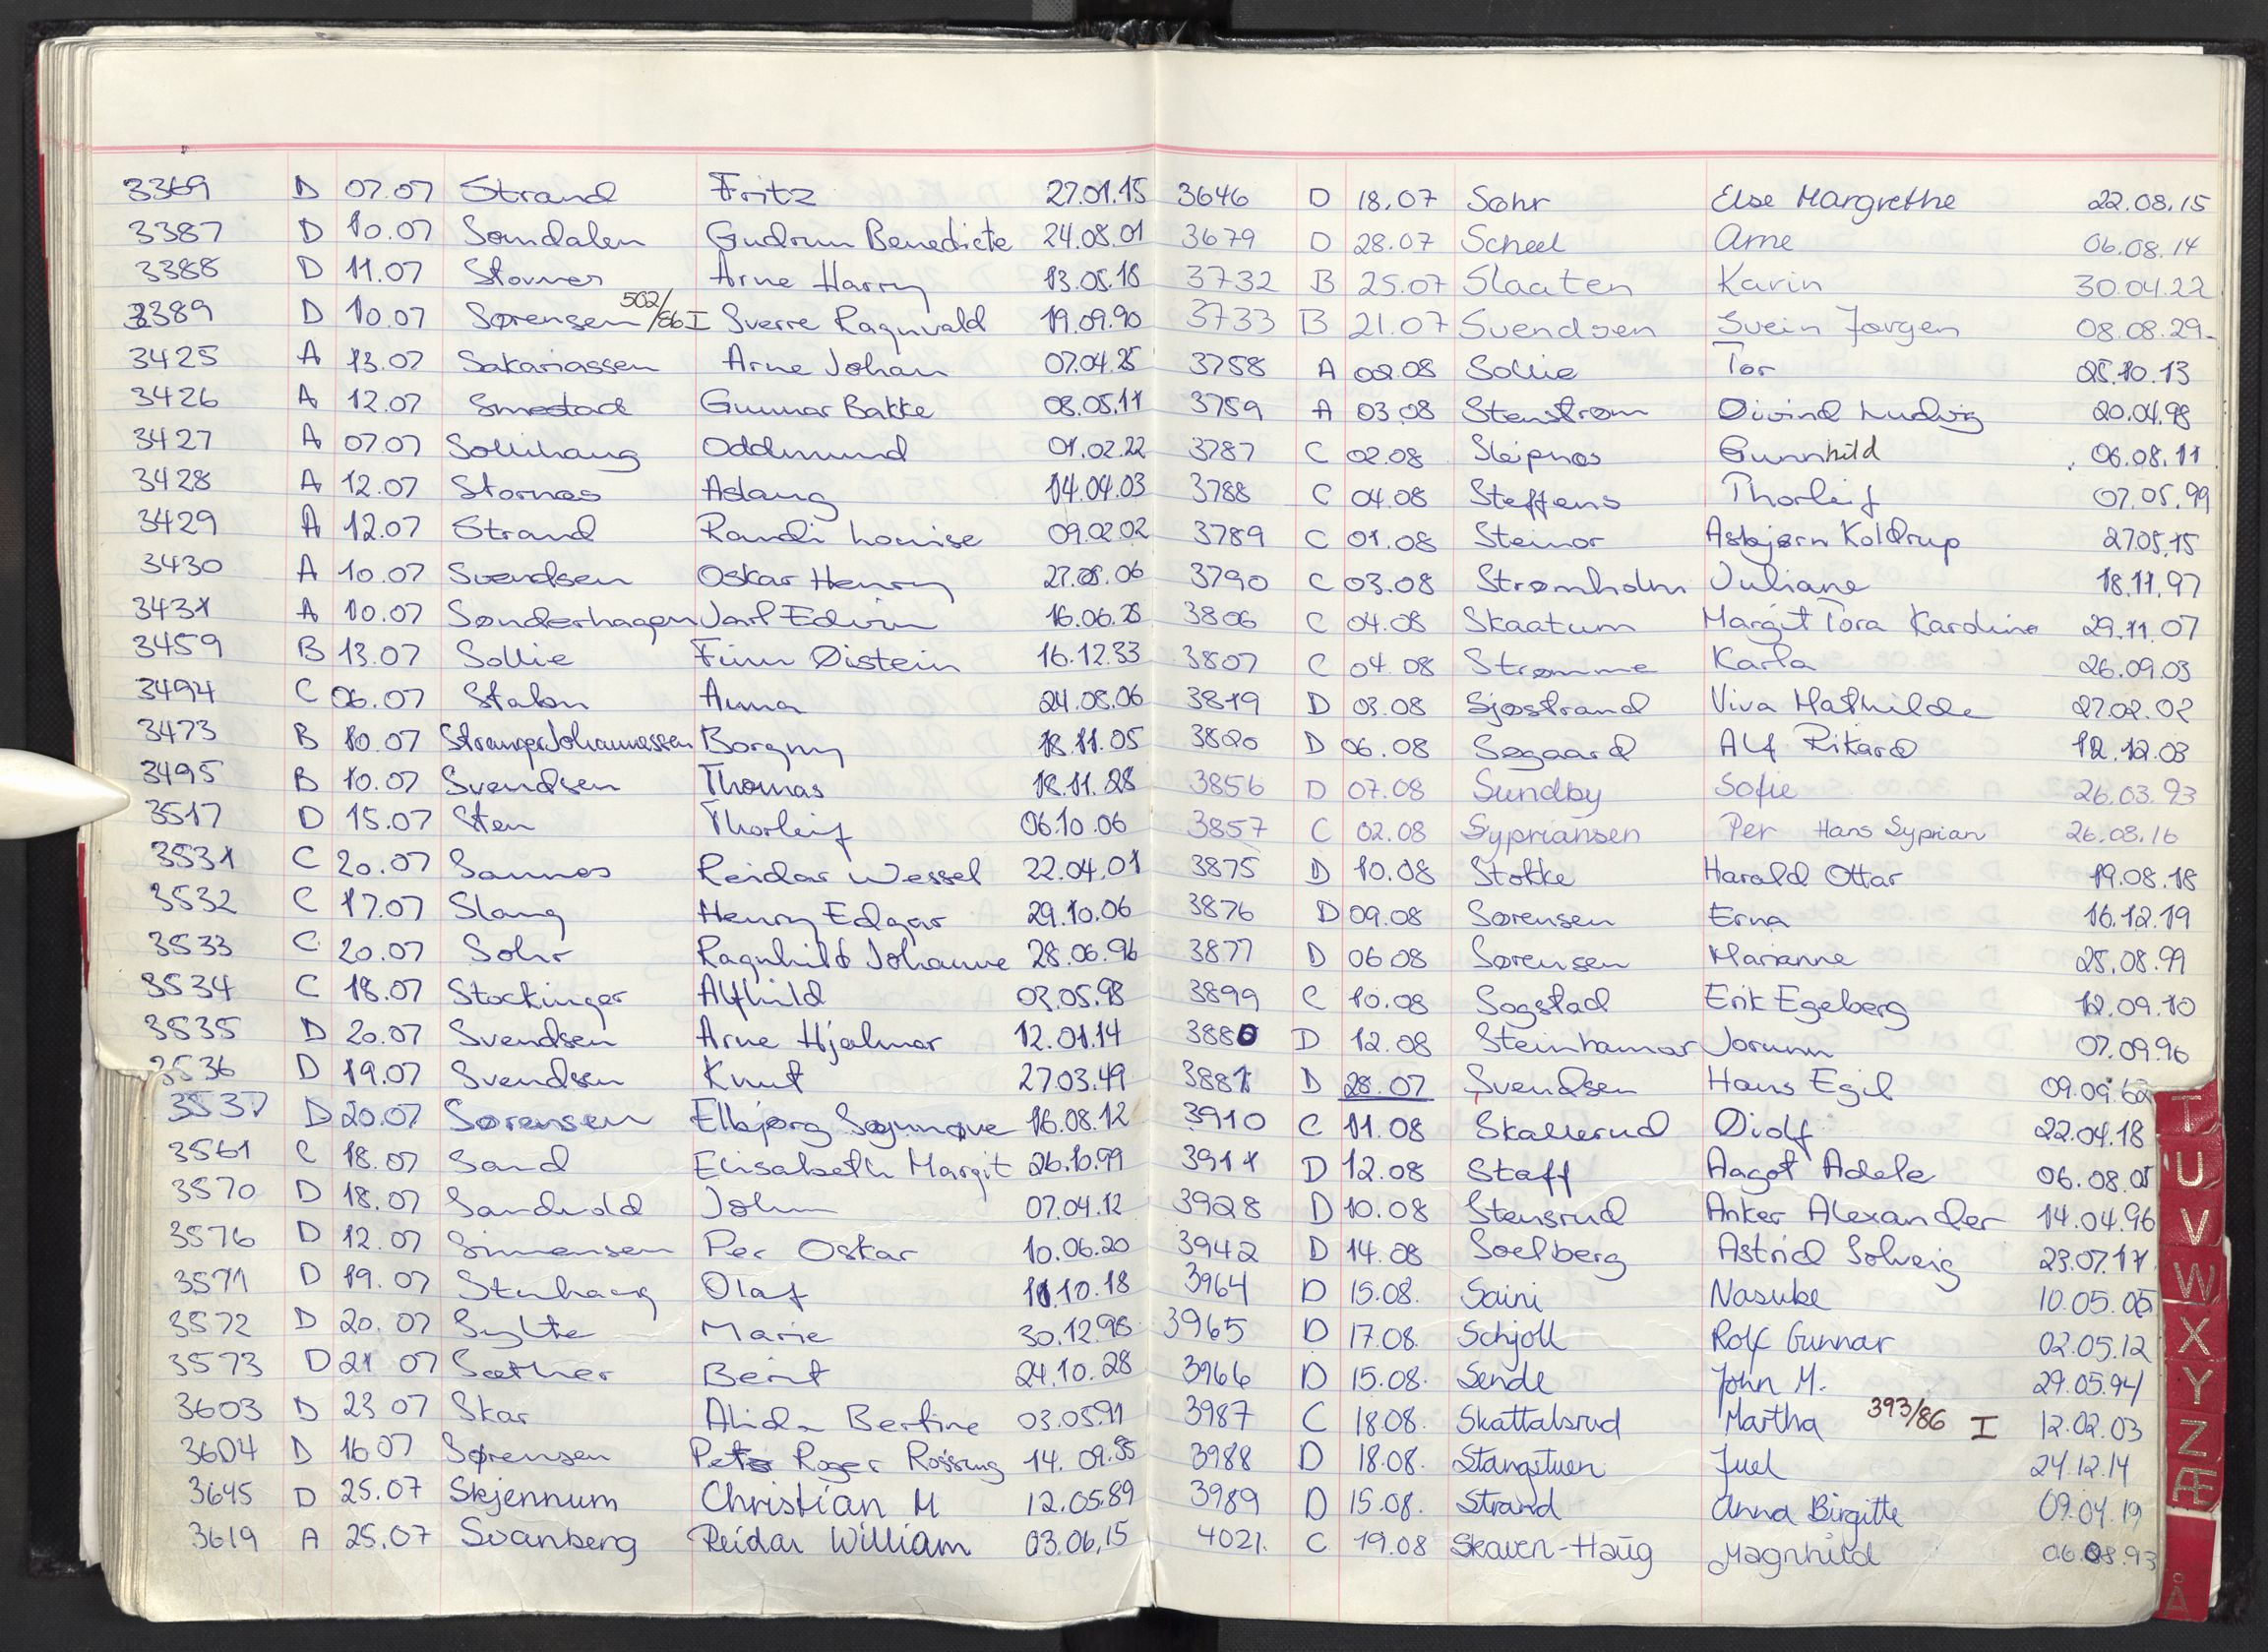 3369 D 07.07 Strand Fritz 27.01.15
3387 D 10.07 Sandalen Gudrun Benedicte 24.08.01
3388 D 11.07 Stavnes Arne Harry 13.05.18
3389 D 10.07 Sørensen 502/86 I Sverre Ragnvald 19.09.90
3425 A 13.07 Sakariassen Arne Johan 07.04.25
3426 A 12.07 Smestad Gunnar Bakke 08.05.11
3427 A 07.07 Sollihaug Oddmund 01.02.22
3428 A 12.07 Stornes Aslaug 14.04.03
3429 A 12.07 Strand Randi Louise 09.02.02
3430 A 10.07 Svendsen Oskar Henry 06
3431 A 10.07 Sønderhagen Jarl Edvin 16.06.28
3459 B 13.07 Sollie Finn Øistein 16.12.33
3494 C 06.07 Anna 24.08.06
3473 B 10.07 Stranger Johannessen Borgny 18.11.05
3495 B 10.07 Svendsen Thomas 18.11.28
3517 D 15.07 Sten Thorleif 06.10.06
3531 C 20.07 Sannes Reidar Wessel 22.04.01
3532 C 17.07 Slang Henry Edgar 29.10.06
3533 C 20.07 Sohr Ragnhild Johanne 28.06.96
3534 C 18.07 Stockinger Alfhild 03.05.98
3535 D 20.07 Svendsen Arne Hjalmar 12.01.14
3536 D 19.07 Svendsen Knut 27.03.49
3537 D 20.07 Sørensen Elbjørg Søgunøve 16.08.12
3561 C 18.07 Sand Elisabeth Margit 26.10.99
3570 D 18.07 Sandvold John 07.04.12
3576 D 12.07 Simensen Per Oskar 10.06.20
3571 D 19.07 Stenhaug Olaf 11.10.18
3572 D 20.07 Sylte Marie 30.12.98
3573 D 21 07 Sæther Berit 24.10.28
3603 D 23 07 Skar Alida Bertine 03.05.91
3604 D 16 07 Sørensen Peter Roger Rossing 14.09.35
3645 D 25.07 Skjennum Christian M 12.05.89
3619 A 25.07 Svanberg Reidar William 03.06.15
3646 D 18.07 Sohr Else Margrethe 22.08.15
3679 D 28.07 Scheel Arne 06.08.14
3732 B 25.07 Slaaten Karin 30.04.22
3733 B 21.07 Svendsen Svein Jørgen 08.08.29
3758 A 02.08 Sollie Tor 25.10.13
3759 A 03.08 Stenstrøm Øivind Ludvig 20.04.98
3787 C 02.08 Sleipnes Gunnhild 06.08.11
3788 C 04.08 Steffens Thorleif 07.05.99
3789 C 01.08 Steinor Asbjørn Koldrup 27.05.15
3790 C 03.08 Strømholm Juliane 18.11.97
3806 C 04.08 Skaatum Margit Tora Karoline 29.11.07
3807 C 04.08 Strømme Karla 26.09.03
3819 D 03.08 Sjøstrand Viva Mathilde 27.02.02
3820 D 06.08 Søgaard Alf Rikard 12.12.03
3856 D 07.08 Sundby Sofie 26.03.93
3857 C 02.08 Sypriansen Per Hans Syprian 26.08.16
3875 D 10.08 Stokke Harald Ottar 19.08.18
3876 D 09.08 Sørensen Erna 16.12.19
3877 D 06 08 Sørensen Marianne 25.08.99
3899 C 10.08 Sogstad Erik Egeberg 12.09.10
3880 D 12.08 Steinhamar Jorunn 07.09.96
3881 D 28.07 Svendsen Hans Egil 09.09.62
3910 C 11.08 Skallerud Øidlf 22.04.18
3911 D 12.08 Staff Aagot Adele 06.08.01
3928 D 10.08 Stensrud Anker Alexander 14.04.96
3942 D 14.08 Soelberg Astrid Solveig 23.07.11
3964 D 15.08. Saini Nasuke 10.05.05
3965 D 17.08. Schjoll Rolf Gunnar 02.05.12
3966 D 15.08. Sende John M. 29.05.94
3987 C 18.08. Skattalsrud Martha 393/86 I 12.02.03
3988 D 18.08. Stangstuen Juel 24.12.14
3989 D 15.08. Strand Anna Birgitte 09.04.19
4021. C 19.08 Skaven-Haug Magnhild 06.08.93
T
U
V
W
X
Y
Z
Æ
Å